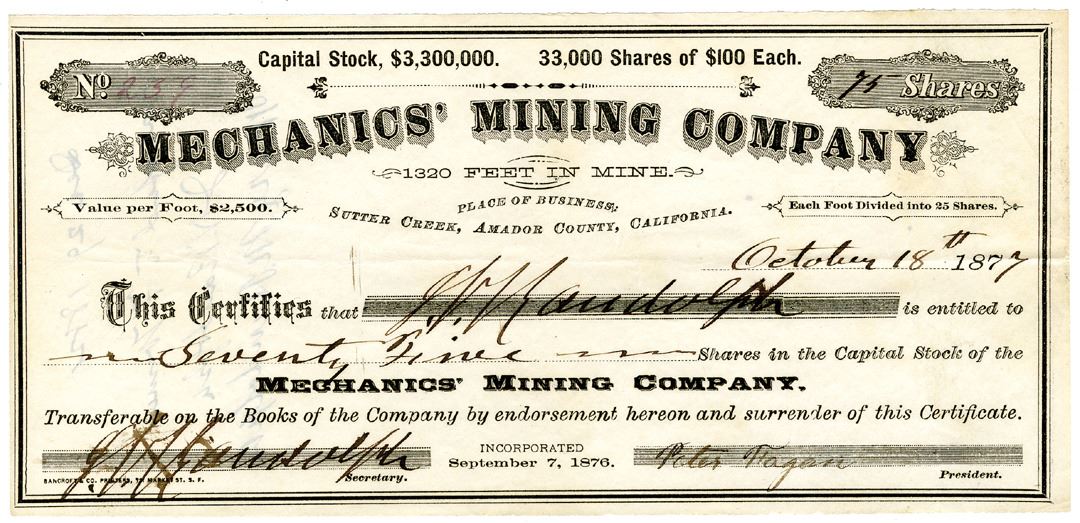 Capital Stock, $3,300,000. 33,000 Shares of $100 Each.
No. 239
75 Shares
MECHANICS' MINING COMPANY
1320 FEET IN MINE.
Value per Foot, $2,500.
PLACE OF BUSINESS,
SUTTER CREEK, AMADOR COUNTY, CALIFORNIA.
Each Foot Divided into 25 Shares.
October 18th 1877
This Certifies that J. F. Randolph is entitled to
Seventy Five Shares in the Capital Stock of the
MECHANICS' MINING COMPANY.
Transferable on the Books of the Company by endorsement hereon and surrender of this Certificate.
Randolph
INCORPORATED
September 7, 1876.
Peter Fagan
BANCROFT & CO. PRINTERS, 721 MARKET ST. S. F.
Secretary.
President.